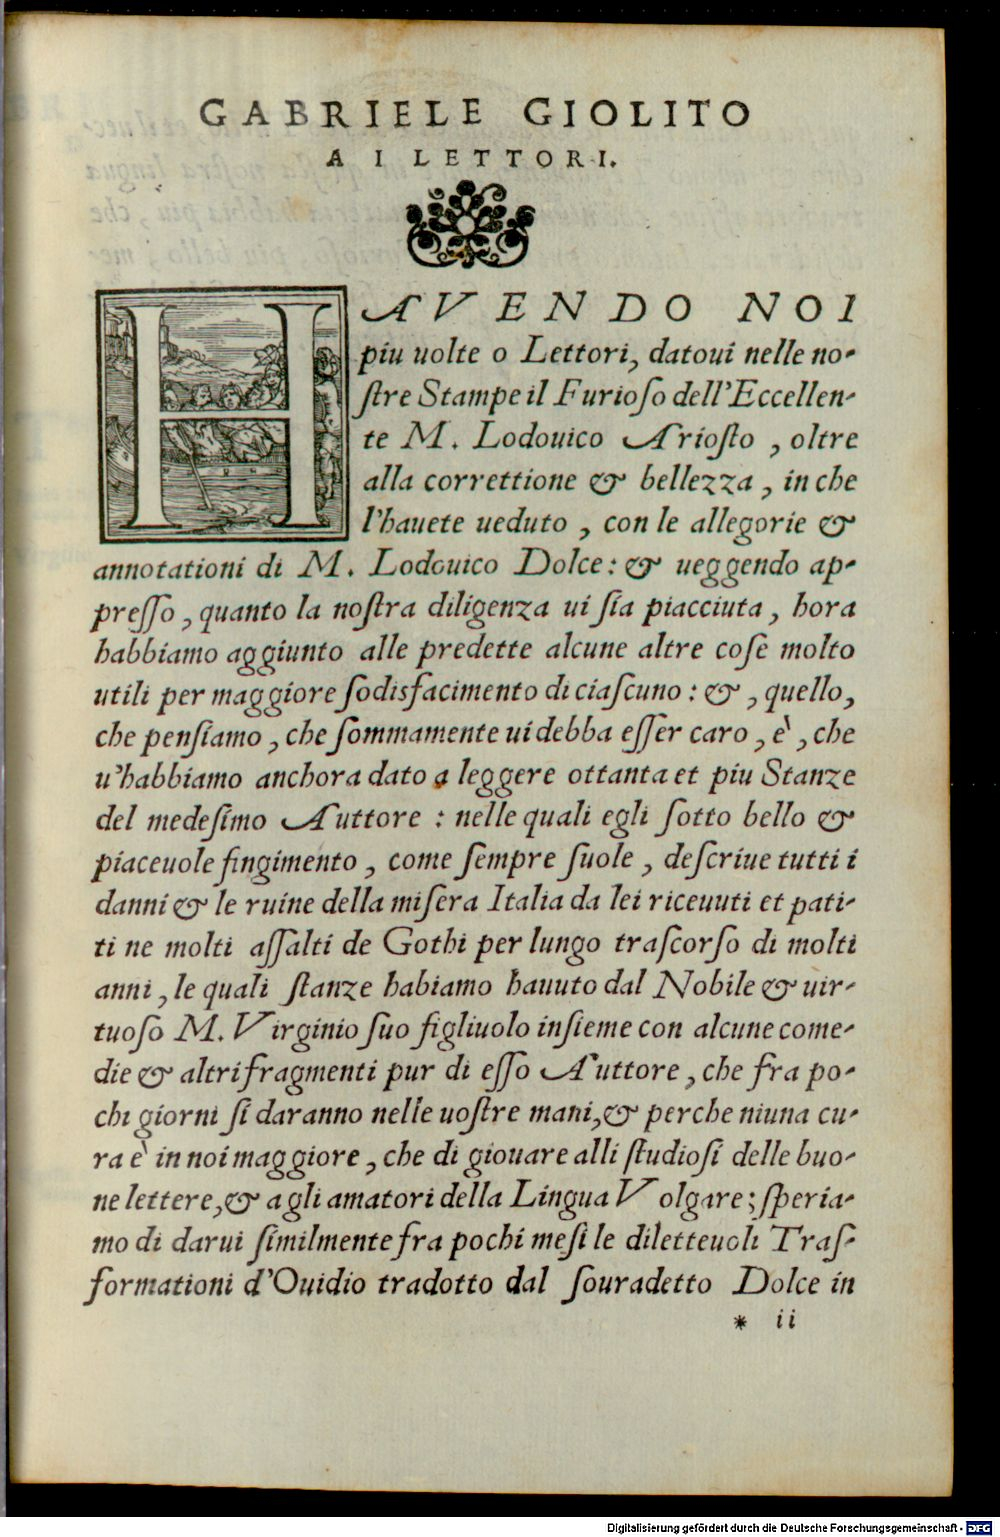 GABRIELE GIOLITO
A I LETTORI.
HAVENDO NOI
piu uolte o Lettori, datoui nelle no-
ſtre Stampe il Furioſo dell'Eccellen-
te M. Lodouico Arioſto, oltre
alla correttione & bellezza, in che
l'hauete ueduto, con le allegorie &
annotationi di M. Lodouico Dolce: & ueggendo ap-
preſſo, quanto la noſtra diligenza ui ſia piacciuta, hora
habbiamo aggiunto alle predette alcune altre coſe molto
utili per maggiore ſodisfacimento di ciaſcuno: &, quello,
che penſiamo, che ſommamente ui debba eſſer caro, è, che
u'habbiamo anchora dato a leggere ottanta et piu Stanze
del medeſimo Auttore: nelle quali egli ſotto bello &
piaceuole fingimento, come ſempre ſuole, deſcriue tutti i
danni & le ruine della miſera Italia da lei riceuuti et pati-
ti ne molti aſſalti de Gothi per lungo traſcorſo di molti
anni, le quali ſtanze habiamo hauuto dal Nobile & uir-
tuoſo M. Virginio ſuo figliuolo inſieme con alcune come-
die & altri fragmenti pur di eſſo Auttore, che fra po-
chi giorni ſi daranno nelle uoſtre mani, & perche niuna cu-
ra è in noi maggiore, che di giouare alli ſtudioſi delle buo-
ne lettere, & a gli amatori della Lingua Volgare; ſperia-
mo di darui ſimilmente fra pochi meſi le diletteuoli Traſ-
formationi d'Ouidio tradotto dal ſouradetto Dolce in
* ii
Digitalisierung gefördert durch die Deutsche Forschungsgemeinschaft - DFG